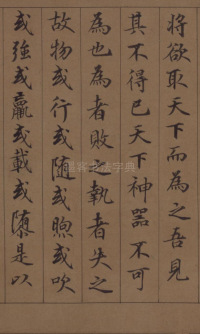 将欲取天下而為之吾見
其不得已天下神器不可
為也為者敗之執者失之
故物或行或随或煦或吹
或強或羸或載或隳是以